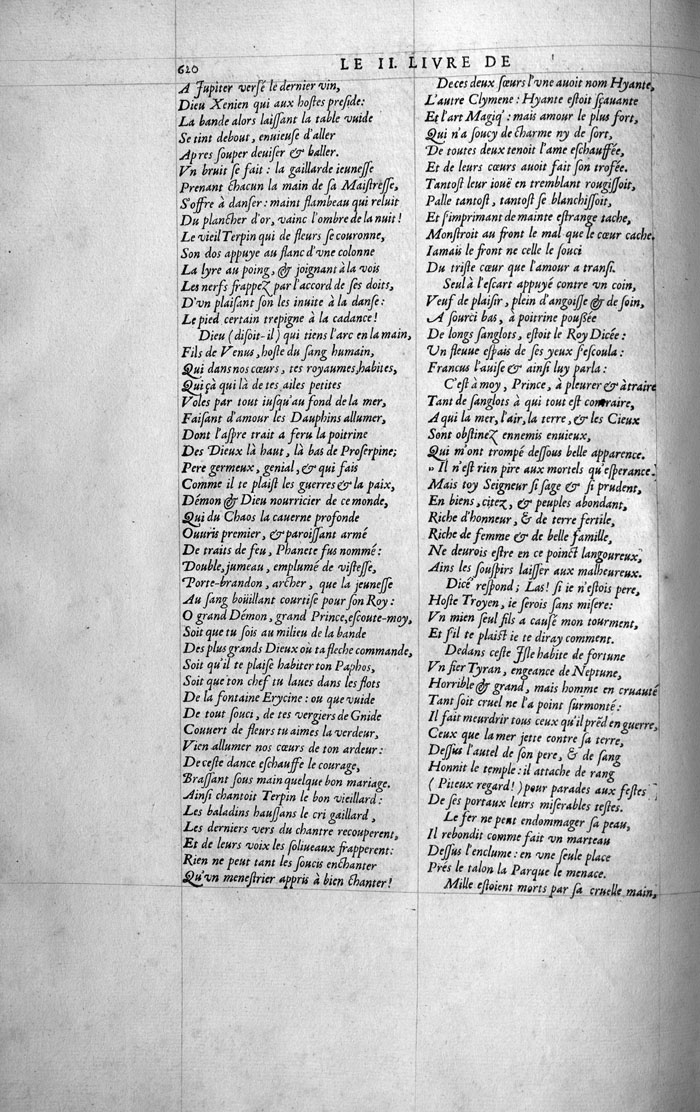 620
LE II. LIVRE DE
A Jupiter versé le dernier vin,
Dieu Xenien qui aux hostes preside:
La bande alors laissant la table vuide
Se tint debout, enuieuse d'aller
Apres souper deuiser & baller.
Vn bruit se fait: la gaillarde ieunesse
Prenant chacun la main de sa Maistresse,
S'offre à danser: maint flambeau qui reluit
Du plancher d'or, vainc l'ombre de la nuit!
Le vieil Terpin qui de fleurs se couronne,
Son dos appuye au flanc d'vne colonne
La lyre au poing, & joignant à la vois
Les nerfs frappez par l'accord de ses doits,
D'vn plaisant son les inuite à la danse:
Le pied certain trepigne à la cadance!
Dieu (disoit-il) qui tiens l'arc en la main,
Fils de Venus, hoste du sang humain,
Qui dans nos cœurs, tes royaumes, habites,
Qui çà qui là de tes ailes petites
Voles par tout iusqu'au fond de la mer,
Faisant d'amour les Dauphins allumer,
Dont l'aspre trait a feru la poitrine
Des Dieux là haut, là bas de Proserpine;
Pere germeux, genial, & qui fais
Comme il te plaist les guerres & la paix,
Démon & Dieu nourricier de ce monde,
Qui du Chaos la cauerne profonde
Ouuris premier, & paroissant armé
De traits de feu, Phanete fus nommé:
Double, jumeau, emplumé de vistesse,
Porte-brandon, archer, que la jeunesse
Au sang boüillant courtise pour son Roy:
O grand Démon, grand Prince, escoute-moy,
Soit que tu sois au milieu de la bande
Des plus grands Dieux où ta fleche commande,
Soit qu'il te plaise habiter ton Paphos,
Soit que ton chef tu laues dans les flots
De la fontaine Erycine: ou que vuide
De tout souci, de tes vergiers de Gnide
Couuert de fleurs tu aimes la verdeur,
Vien allumer nos cœurs de ton ardeur:
De ceste dance eschauffe le courage,
Brassant sous main quelque bon mariage.
Ainsi chantoit Terpin le bon vieillard:
Les baladins haussans le cri gaillard,
Les derniers vers du chantre recouperent,
Et de leurs voix les soliueaux frapperent:
Rien ne peut tant les soucis enchanter
Qu'vn menestrier appris à bien chanter!
De ces deux sœurs l'vne auoit nom Hyante,
L'autre Clymene: Hyante estoit sçauante
Et l'art Magiq': mais amour le plus fort,
Qui n'a soucy de charme ny de sort,
De toutes deux tenoit l'ame eschauffée,
Et de leurs cœurs auoit fait son trofée.
Tantost leur iouë en tremblant rougissoit,
Palle tantost, tantost se blanchissoit,
Et s'imprimant de mainte estrange tache,
Monstroit au front le mal que le cœur cache.
Iamais le front ne celle le souci
Du triste cœur que l'amour a transi.
Seul à l'escart appuyé contre vn coin,
Veuf de plaisir, plein d'angoisse & de soin,
A sourci bas, à poitrine poußée
De longs sanglots, estoit le Roy Dicée:
Vn fleuue espais de ses yeux s'escoula:
Francus l'auise & ainsi luy parla:
C'est à moy, Prince, à pleurer & à traire
Tant de sanglots à qui tout est contraire,
A qui la mer, l'air, la terre, & les Cieux
Sont obstinez ennemis enuieux,
Qui m'ont trompé dessous belle apparence.
„ Il n'est rien pire aux mortels qu'esperance.
Mais toy Seigneur si sage & si prudent,
En biens, citez, & peuples abondant,
Riche d'honneur, & de terre fertile,
Riche de femme & de belle famille,
Ne deurois estre en ce poinct langoureux,
Ains les souspirs laisser aux malheureux.
Dicé' respond; Las! si ie n'estois pere,
Hoste Troyen, ie serois sans misere:
Vn mien seul fils a causé mon tourment,
Et s'il te plaist ie te diray comment.
Dedans ceste Isle habite de fortune
Vn fier Tyran, engeance de Neptune,
Horrible & grand, mais homme en cruauté
Tant soit cruel ne l'a point surmonté:
Il fait meurdrir tous ceux qu'il prẽd en guerre,
Ceux que la mer jette contre sa terre,
Dessus l'autel de son pere, & de sang
Honnit le temple: il attache de rang
(Piteux regard!) pour parades aux festes
De ses portaux leurs miserables testes.
Le fer ne peut endommager sa peau,
Il rebondit comme fait vn marteau
Dessus l'enclume: en vne seule place
Prés le talon la Parque le menace.
Mille estoient morts par sa cruelle main,